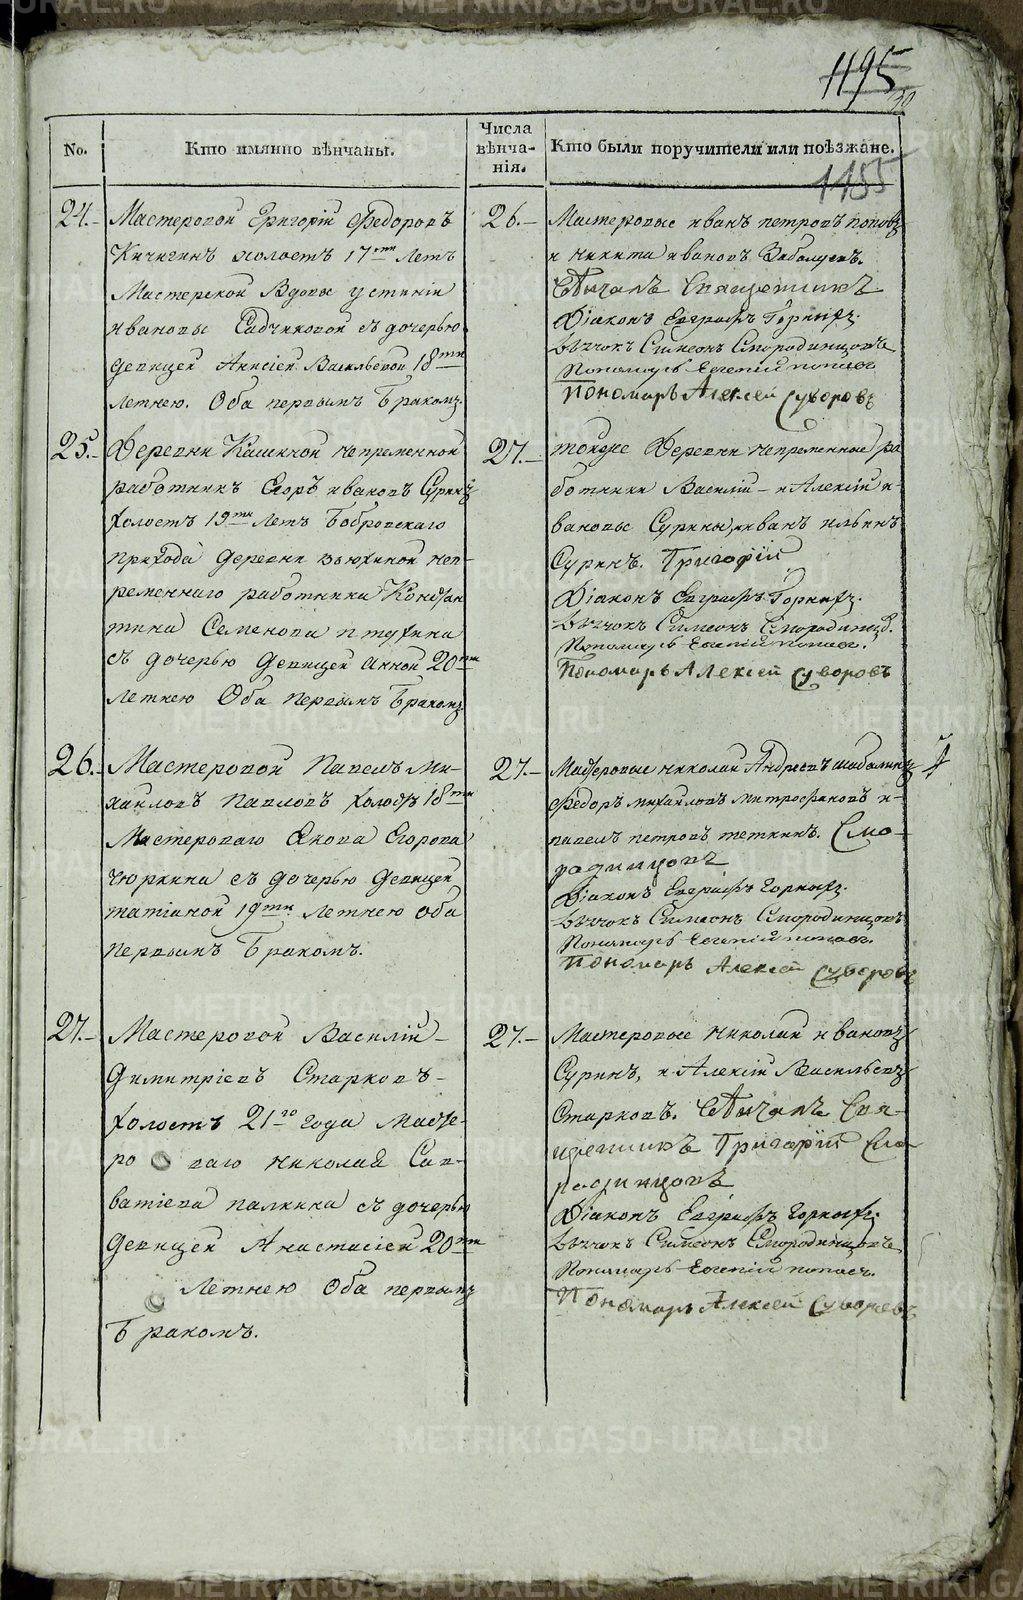 1195
1155
No.
Кто имянно вѣнчаны.
Числа вѣнча-нія.
Кто были поручители или поѣзжане.
24.
Мастеровой Григорій Ѳедоровъ
Кичигинъ холостъ 17ти Летъ
Мастерской Вдовы устиніи
ивановы Садчиковой съ дочерью
девицей Анисіей Васильевой 18ти
летнею. Оба первымъ Бракомъ.
26.
Мастеровые иванъ петровъ поповъ
и никита ивановъ
Вѣнчалъ Священникъ
Діаконъ Евграфъ Горныхъ.
Дьячокъ Симеонъ Смородинцовъ
Пономарь Евгеній поповъ
Пономарь Алексей Суворовъ
25.
Деревни Кашиной непременной
работникъ Егоръ ивановъ Суринъ
холостъ 19ти Летъ Бобровскаго
прихода деревни вьюхиной неп-
ременнаго работника Констан
тина Семенова птухина
съ дочерью девицей анной 20ти
летнею Оба первымъ Бракомъ
27.
тойже Деревни непременные ра
ботники Василій и Алексій и-
вановы Сурины, иванъ ильинъ
Суринъ. Григорій
Діаконъ Евграфъ Горныхъ.
Дьячокъ Симеонъ Смородинцов.
Пономарь Евгеній поповъ.
Пономарь Алексей Суворовъ
26.
Мастеровой Павелъ Ми-
хаиловъ павловъ холостъ 18ти
Мастероваго Якова Егорова
чюркина съ дочерью девицей
татіаной 19ти Летнею оба
первымъ Бракомъ.
27.
Мастеровые николай Андреевъ шабалинъ
Ѳедоръ михайловъ митрофановъ и
павелъ петровъ теткинъ. Смо-
родинцовъ
Діаконъ Евграфъ Горныхъ.
Дьячокъ Симеонъ Смородинцовъ
Пономарь Евгеній поповъ.
Пономарь Алексей Суворовъ
27.
Мастеровой Василій
Димитріевъ Старковъ
холостъ 21го года Масте-
роваго николая Сав-
ватіева палкина съ дочерью
девицей Анастасіей 20ти
Летнею Оба первымъ
Бракомъ.
27.
Мастеровые николай ивановъ
Суринъ, и Алексій Васильевъ
Старковъ. Вѣнчалъ Свя-
щенникъ Григорій Смо-
родинцовъ
Діаконъ Евграфъ Горныхъ.
Дьячокъ Симеонъ Смородинцовъ
Пономарь Евгеній поповъ.
Пономарь Алексей Суворовъ
METRIKI.GASO-URAL.RU